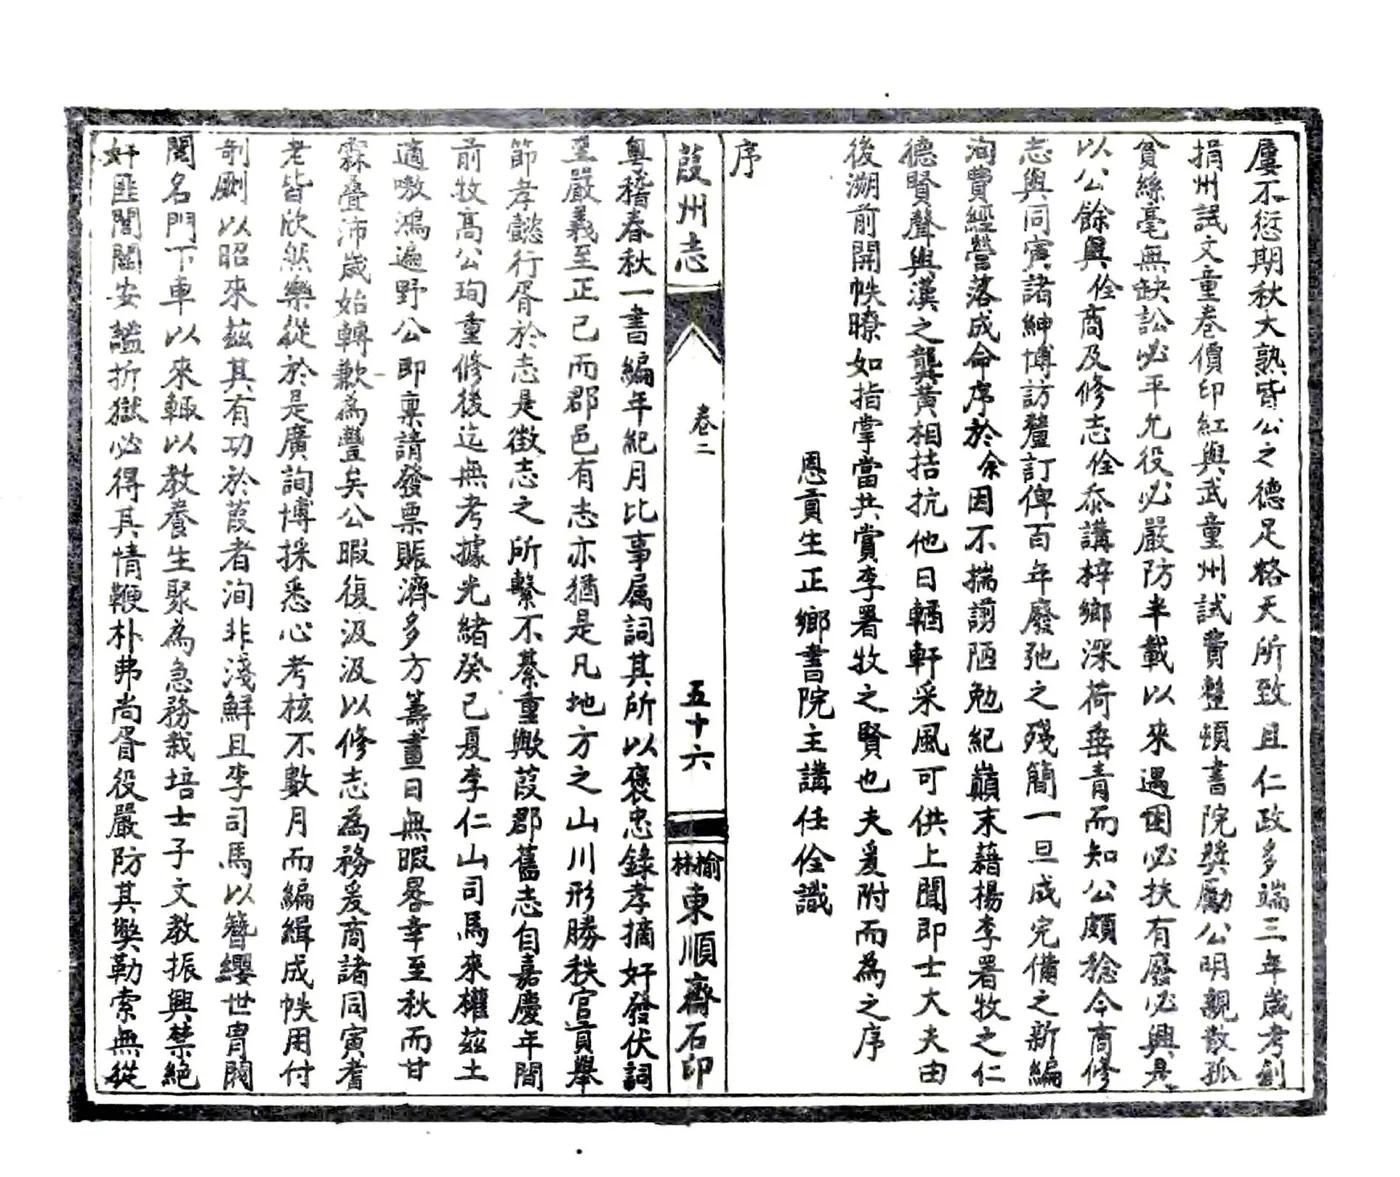 屢不愆期秋大熟皆公之德足格天所致且仁政多端三年歲考創
捐州試文童卷價印紅與武童州試費整頓書院獎勵公明親散孤
貧絲毫無缺訟必平允役必嚴防半載以來遇困必扶有廢必興是
以公餘與佺商及修志佺忝講梓鄉深荷垂青而知公頗稔今商修
志與同寅諸紳博訪釐訂俾百年廢弛之殘簡一旦成完備之新編
洵費經營落成命序於余因不揣譾陋勉紀巔末藉揚李署牧之仁
德賢聲與漢之龔黃相拮抗他日輶軒采風可供上聞即士大夫由
後溯前開帙瞭如指掌當共賞李署牧之賢也夫爰附而為之序
恩貢生正鄉書院主講任佺識
序
葭州志
卷二
五十六
榆林東順齋石印
粵稽春秋一書編年紀月比事属詞其所以褒忠錄孝摘奸發伏詞
至嚴義至正已而郡邑有志亦猶是凡地方之山川形勝秩官貢舉
節孝懿行胥於志是徵志之所繫不綦重歟葭郡舊志自嘉慶年間
前牧高公珣重修後迄無考據光緒癸巳夏李仁山司馬來權茲土
適嗷鴻遍野公即稟請發票賑濟多方籌畫日無暇晷幸至秋而甘
霖疊沛歲始轉歉為豐矣公暇復汲汲以修志為務爰商諸同寅耆
老皆欣然樂從於是廣詢博採悉心考核不數月而編緝成帙用付
剞劂以昭來茲其有功於葭者洵非淺鮮且李司馬以簪纓世冑閥
閱名門下車以來輒以教養生聚為急務栽培士子文教振興禁絕
奸匪閭閻安謐折獄必得其情鞭朴弗尚胥役嚴防其弊勒索無從